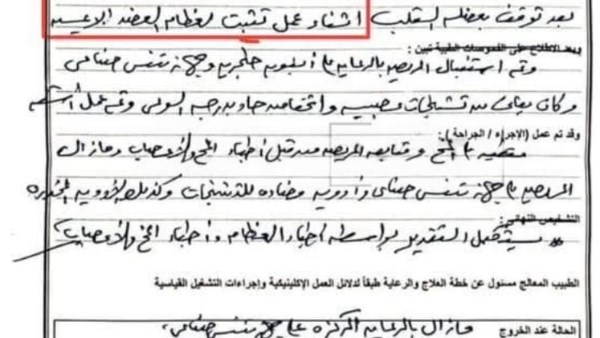 بعد توقف بعضلة القلب أثناء عمل تثبيت لعظام العضد الأيسر
بعد الاطلاع على الفحوصات الطبية تبين :
وتم استقبال المريض بالرعاية على أنبوبة حنجرية وجهاز تنفس صناعي
وكان يعاني من تشنجات عصبية وانخفاض حاد بدرجة الوعي وتم عمل أشعة
وقد تم عمل (الإجراء / الجراحة) :
على المخ ومتابعة المريض من قبل أطباء المخ والأعصاب ومازال
المريض على جهاز تنفس صناعي وأدوية مضادة للتشنجات وكذلك الأدوية المخدرة
التشخيص النهائي :
يستكمل التقدير بواسطة أطباء العظام وأطباء المخ والأعصاب
الطبيب المعالج مسئول عن خطة العلاج والرعاية طبقاً لدلائل العمل الإكلينيكية وإجراءات التشغيل القياسية
الحالة عند الخروج مازال بالرعاية المركزة على جهاز تنفس صناعي